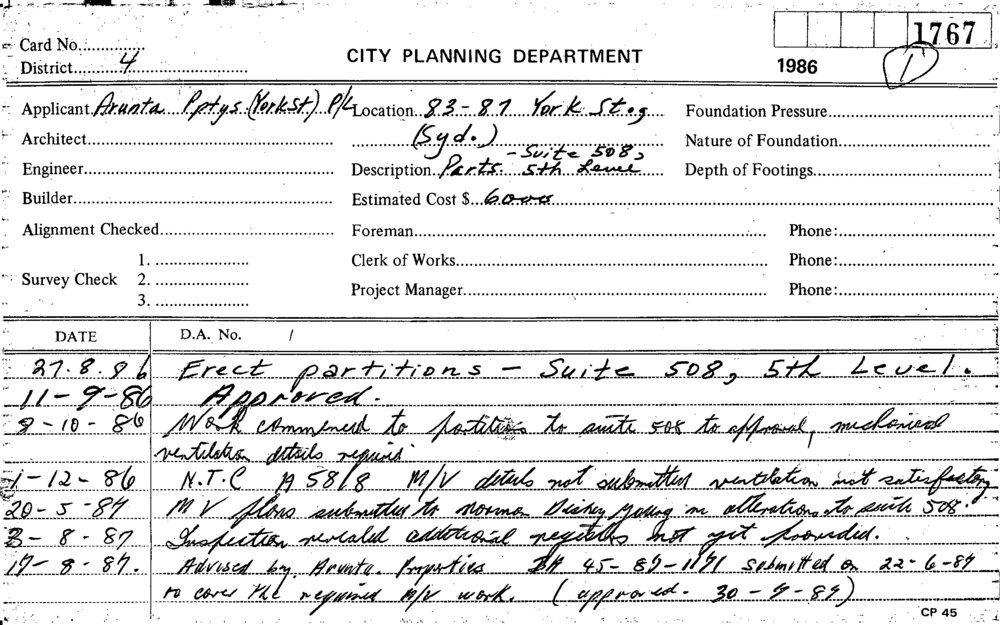 Card No.
1767
District 4
CITY PLANNING DEPARTMENT
1986
1
Applicant Arunta Pptys (York St.) P/L Location 83-87 York St.
Foundation Pressure
Architect (Syd.)
Nature of Foundation
Engineer Description Parts - Suite 508, 5th Level
Depth of Footings
Builder Estimated Cost $ 6000
Alignment Checked Foreman Phone:
1.
Clerk of Works Phone:
Survey Check 2.
Project Manager Phone:
3.
DATE D.A. No. /
27.8.86 Erect partitions - Suite 508, 5th Level.
11-9-86 Approved.
8-10-86 Work commenced to partitions to suite 508 to approval, mechanical
ventilation details required
1-12-86 N.T.C A5818 M/V details not submitted ventilation not satisfactory
20-5-87 M V plans submitted to Norman Disney Young in alterations to suite 508.
3-8-87 Inspection revealed additional registers not yet provided.
17-8-87. Advised by Arunta Properties BA 45-87-1191 submitted on 22-6-87
to cover the required M/V work. (approved - 30-9-87)
CP 45